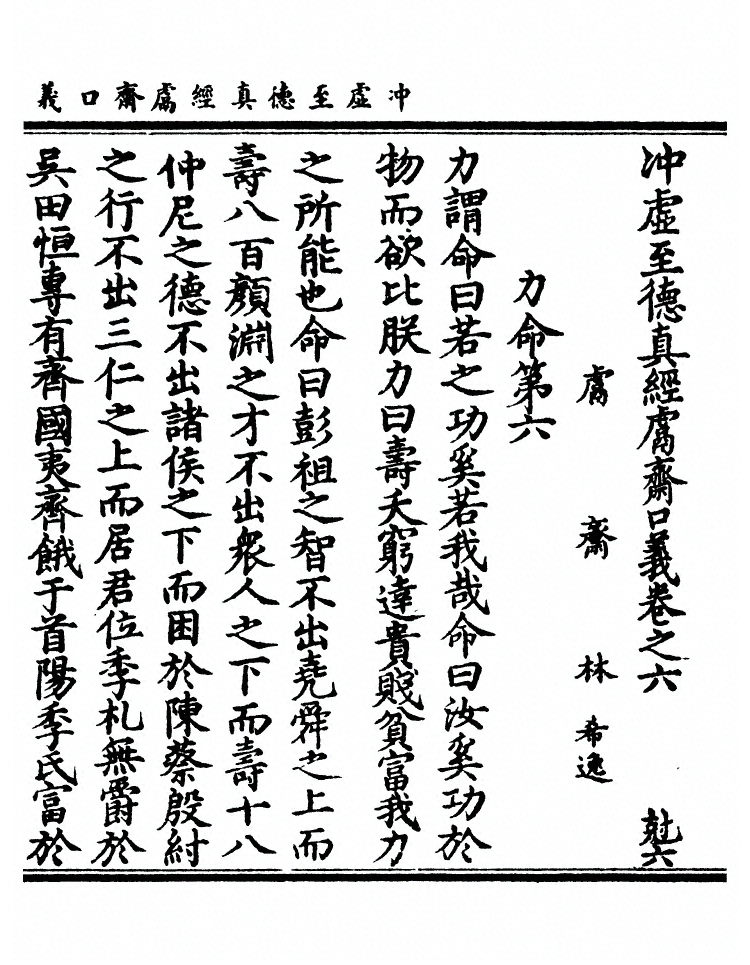 冲虛至德真經鬳齋口義
冲虛至德真經鬳齋口義卷之六 尅六
鬳齋林希逸
力命第六
力謂命曰若之功奚若我哉命曰汝奚功於
物而欲比朕力曰壽夭窮達貴賤貧富我力
之所能也命曰彭祖之智不出堯舜之上而
壽八百顏淵之才不出衆人之下而壽十八
仲尼之德不出諸侯之下而困於陳蔡殷紂
之行不出三仁之上而居君位季札無爵於
吳田恒專有齊國夷齊餓于首陽季氏富於